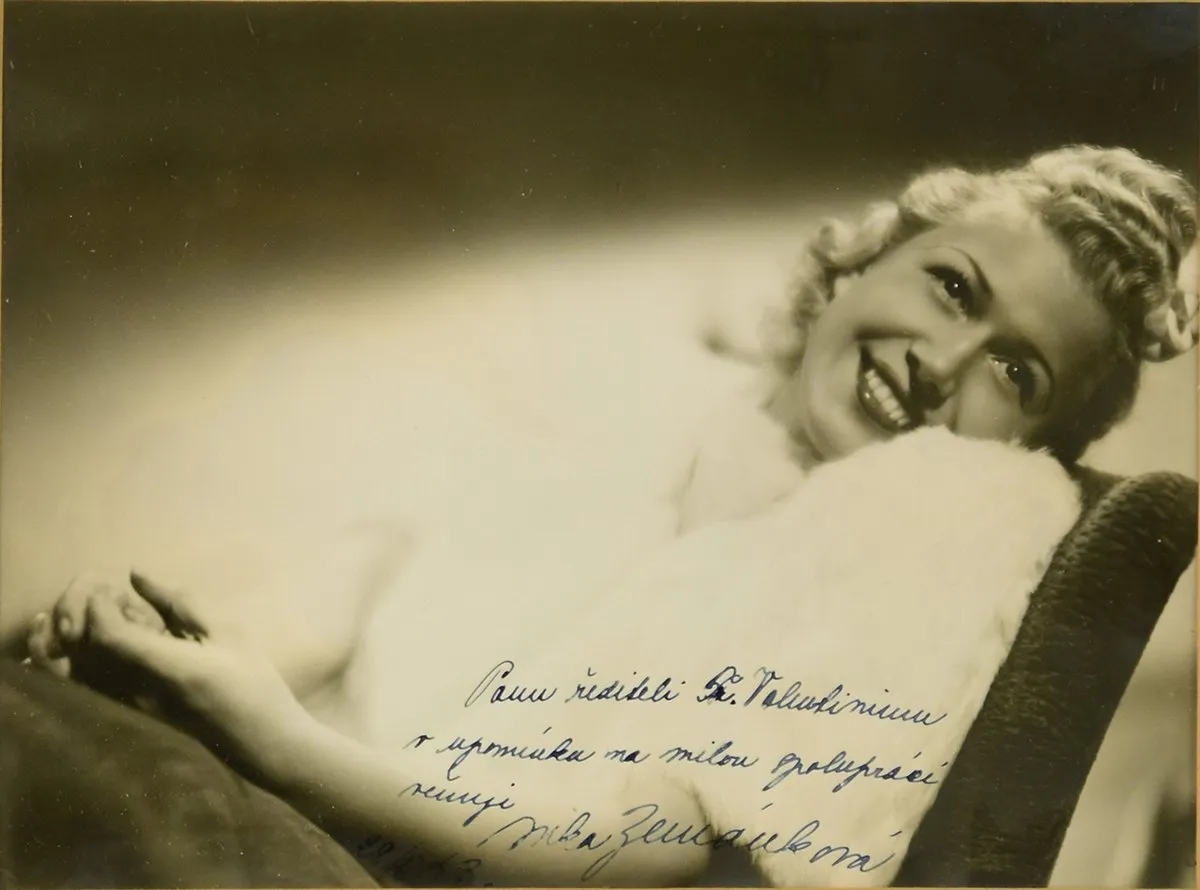 Panu řediteli Fr. Valentinimu
v upomínku na milou spolupráci
věnuje
Inka Zemánková